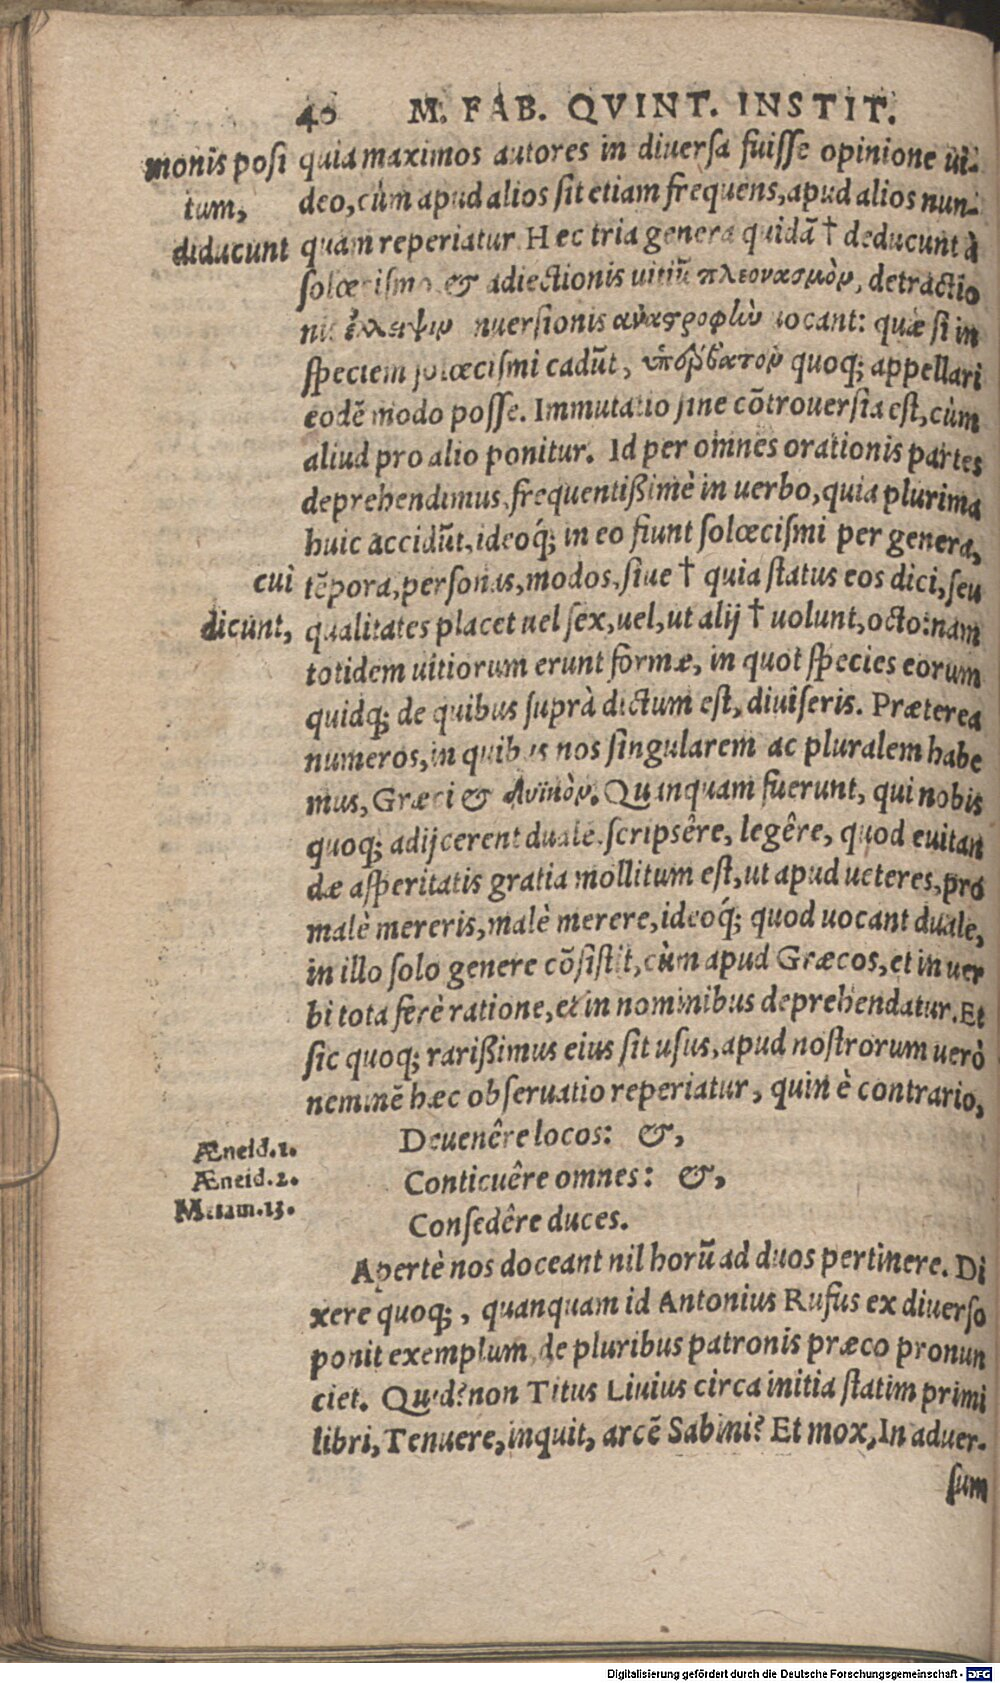 40 M. FAB. QVINT. INSTIT.
monis posi
tum,
diducunt
quia maximos autores in diuersa fuisse opinione ui-
deo, cùm apud alios sit etiam frequens, apud alios nun-
quam reperiatur Hec tria genera quidã † deducunt à
solœcismo & adiectionis uitiũ πλεονασμὸν, detractio
nis ἔλλειψιν nuersionis ἀναστροφὴν uocant: quæ si in
speciem solœcismi cadũt, ὑπερβατὸν quoq; appellari
eodẽ modo posse. Immutatio sine cõtrouersia est, cùm
aliud pro alio ponitur. Id per omnes orationis partes
deprehendimus, frequentißimè in uerbo, quia plurima
huic accidũt, ideoq́; in eo fiunt solœcismi per genera,
cui
tẽpora, personas, modos, siue † quia status eos dici, seu
dicunt,
qualitates placet uel sex, uel, ut alij † uolunt, octo: nam
totidem uitiorum erunt formæ, in quot species eorum
quidq; de quibus suprà dictum est, diuiseris. Præterea
numeros, in quibus nos singularem ac pluralem habe
mus, Græci & δυϊκὸν. Quanquam fuerunt, qui nobis
quoq; adijcerent duale. scripsêre, legêre, quod euitan
dæ asperitatis gratia mollitum est, ut apud ueteres, pro
malè mereris, malè merere, ideoq́; quod uocant duale,
in illo solo genere cõsistit, cùm apud Græcos, et in uer
bi tota ferè ratione, et in nominibus deprehendatur. Et
sic quoq; rarißimus eius sit usus, apud nostrorum uerò
neminẽ hæc obseruatio reperiatur, quin è contrario,
Æneid.1.
Deuenêre locos: &,
Æneid.2.
Conticuêre omnes: &,
Metam.13.
Consedêre duces.
Apertè nos doceant nil horũ ad duos pertinere. Di
xere quoq;, quanquam id Antonius Rufus ex diuerso
ponit exemplum, de pluribus patronis præco pronun
ciet. Quid? non Titus Liuius circa initia statim primi
libri, Tenuere, inquit, arcẽ Sabini? Et mox, In aduer-
sum
Digitalisierung gefördert durch die Deutsche Forschungsgemeinschaft - DFG